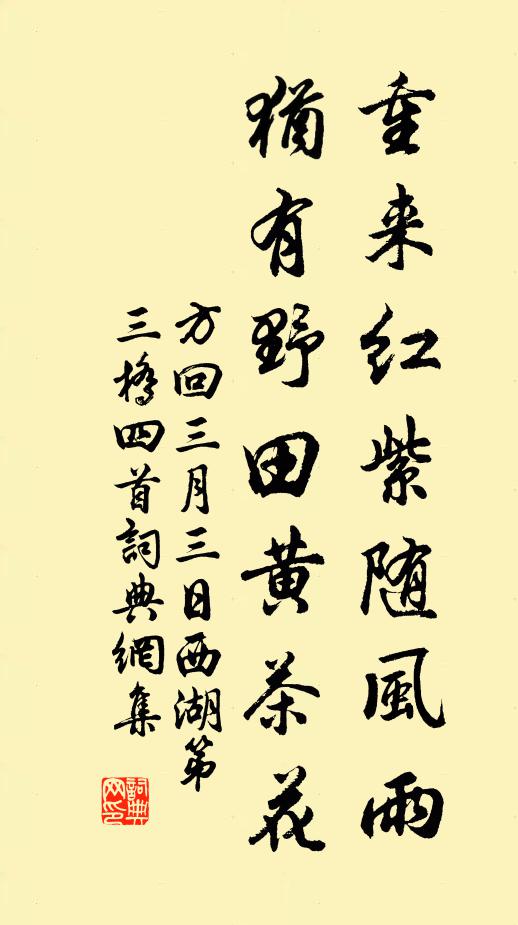 重来红紫随風雨
猶有野田黄茶花
方回三月三日西湖第
三橋四首詞典網集
詞典
网印